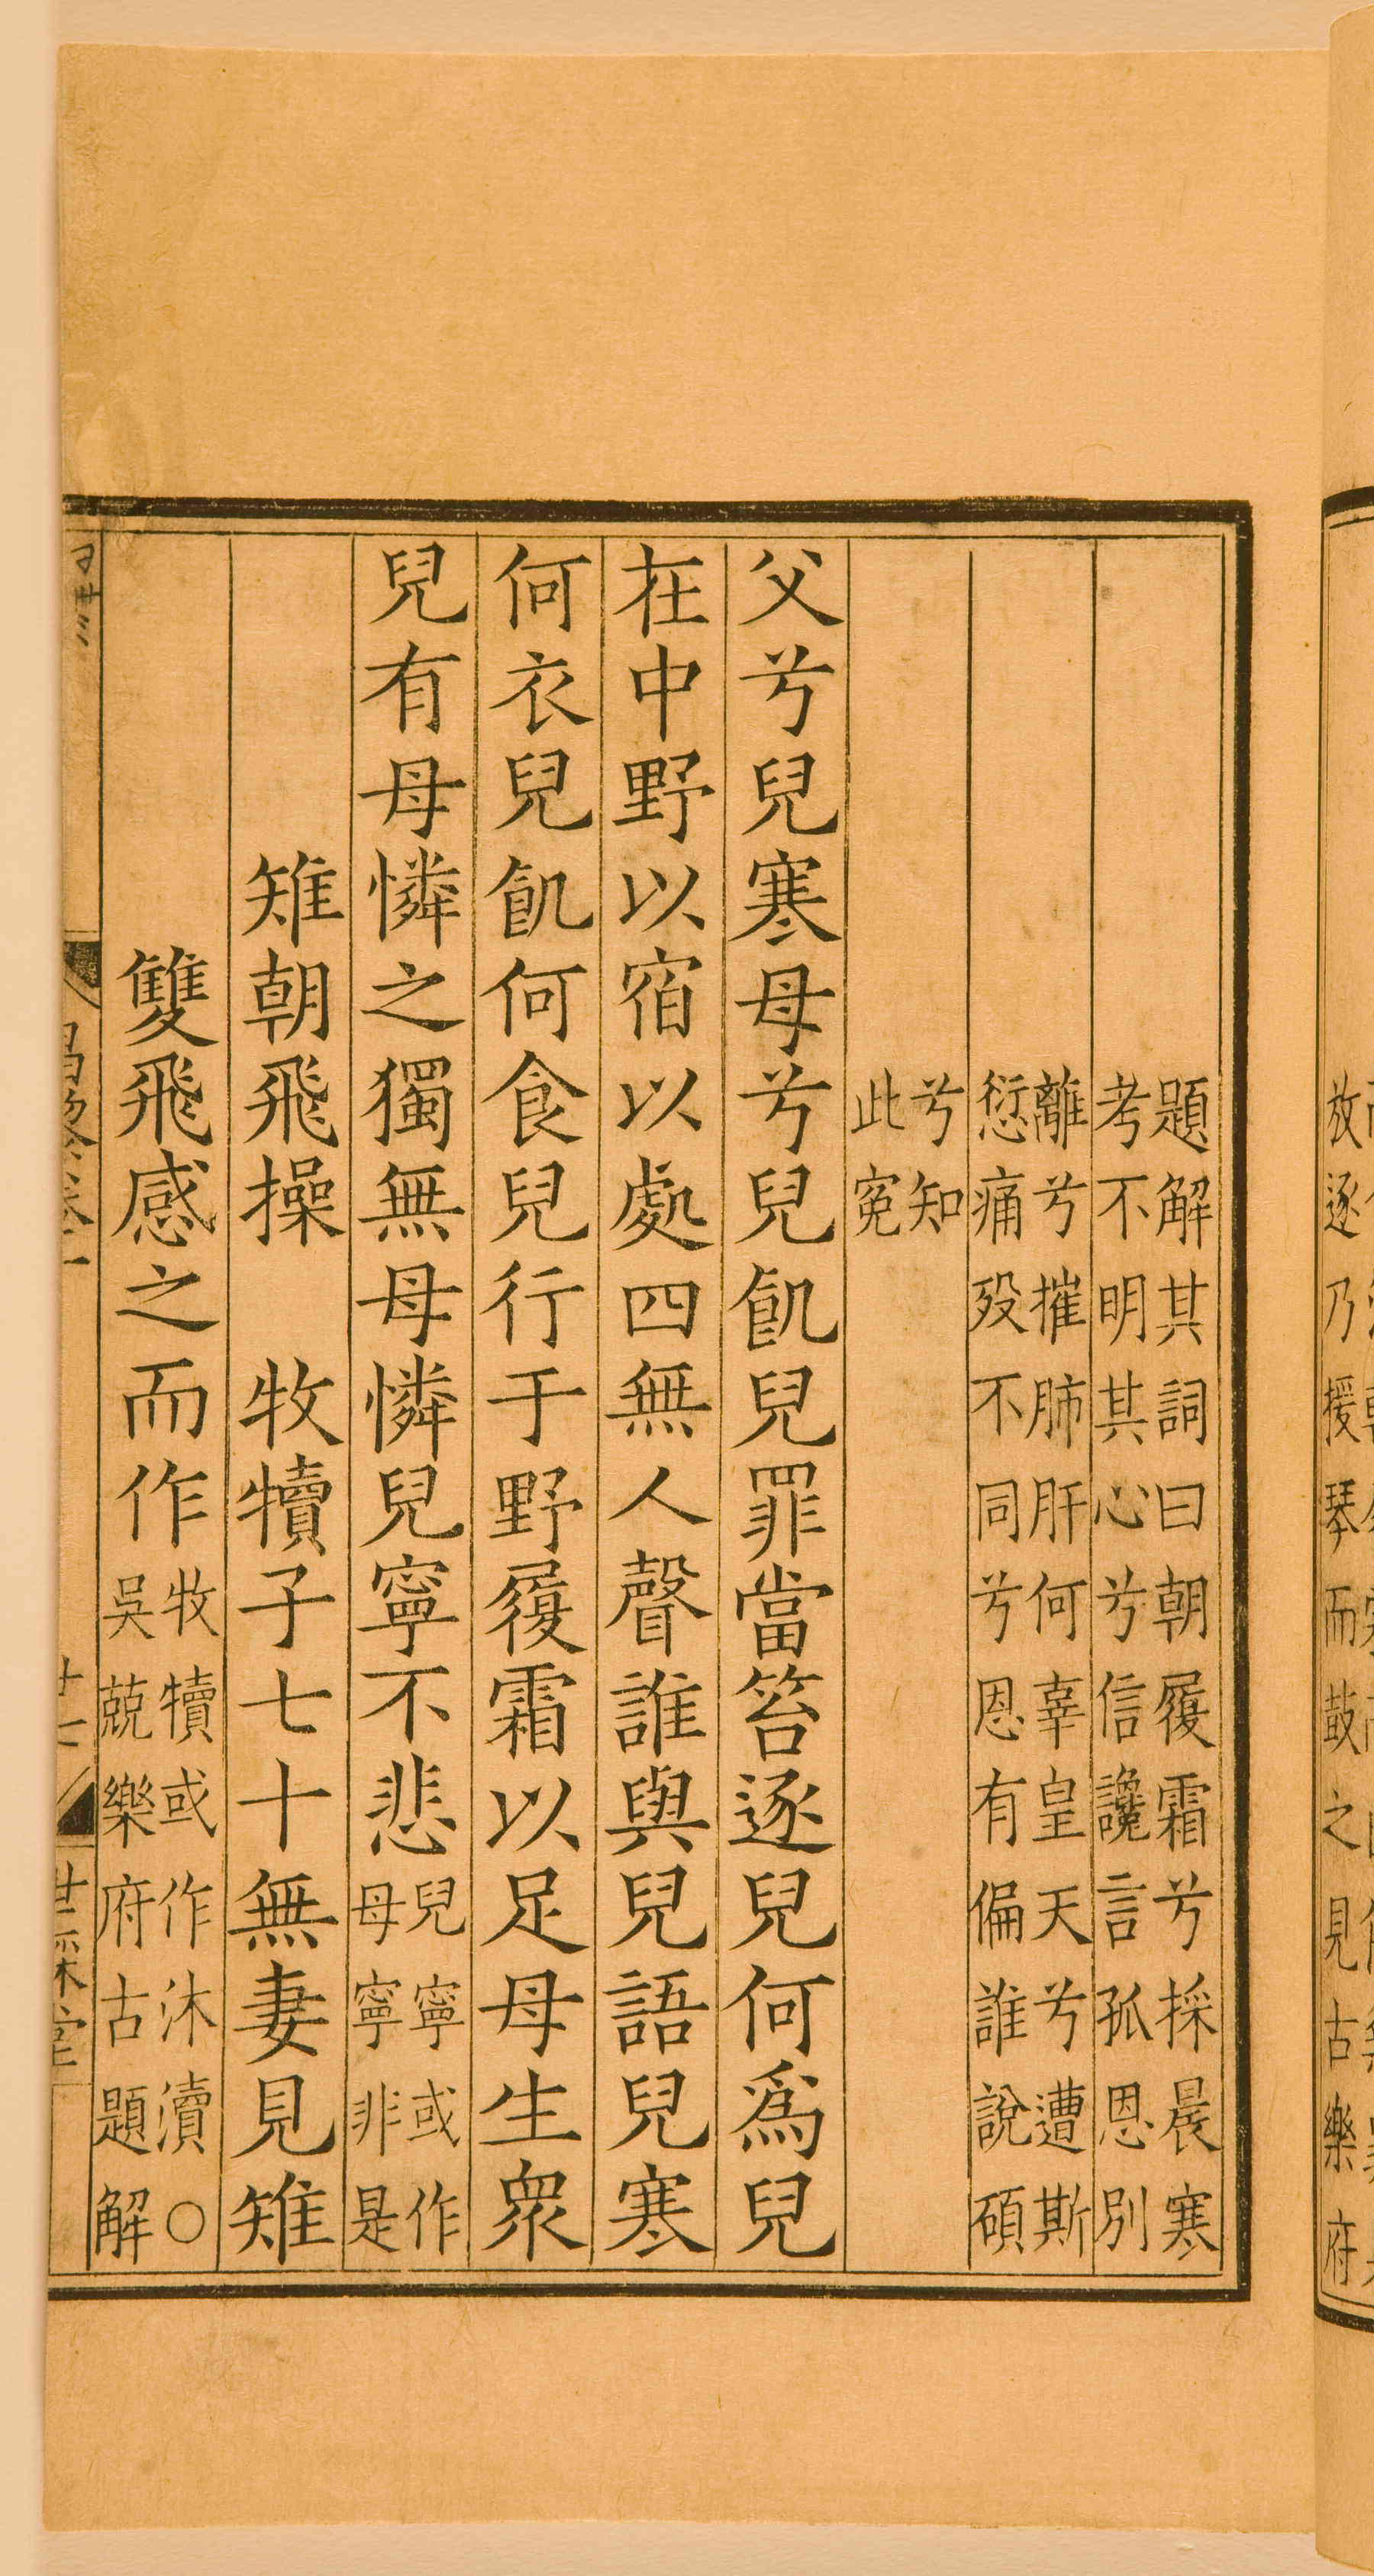 題解其詞曰朝履霜兮採晨寒
考不明其心兮信讒言孤恩別
離兮摧肺肝何辜皇天兮遭斯
愆痛歿不同兮恩有偏誰說碩
兮知
此冤
父兮兒寒母兮兒飢兒罪當笞逐兒何爲兒
在中野以宿以處四無人聲誰與兒語兒寒
何衣兒飢何食兒行于野履霜以足母生衆
兒有母憐之獨無母憐兒寧不悲
兒寧或作
母寧非是
雉朝飛操　牧犢子七十無妻見雉
雙飛感之而作
牧犢或作沐瀆○
吳兢樂府古題解
放逐乃援琴而鼓之見古樂府